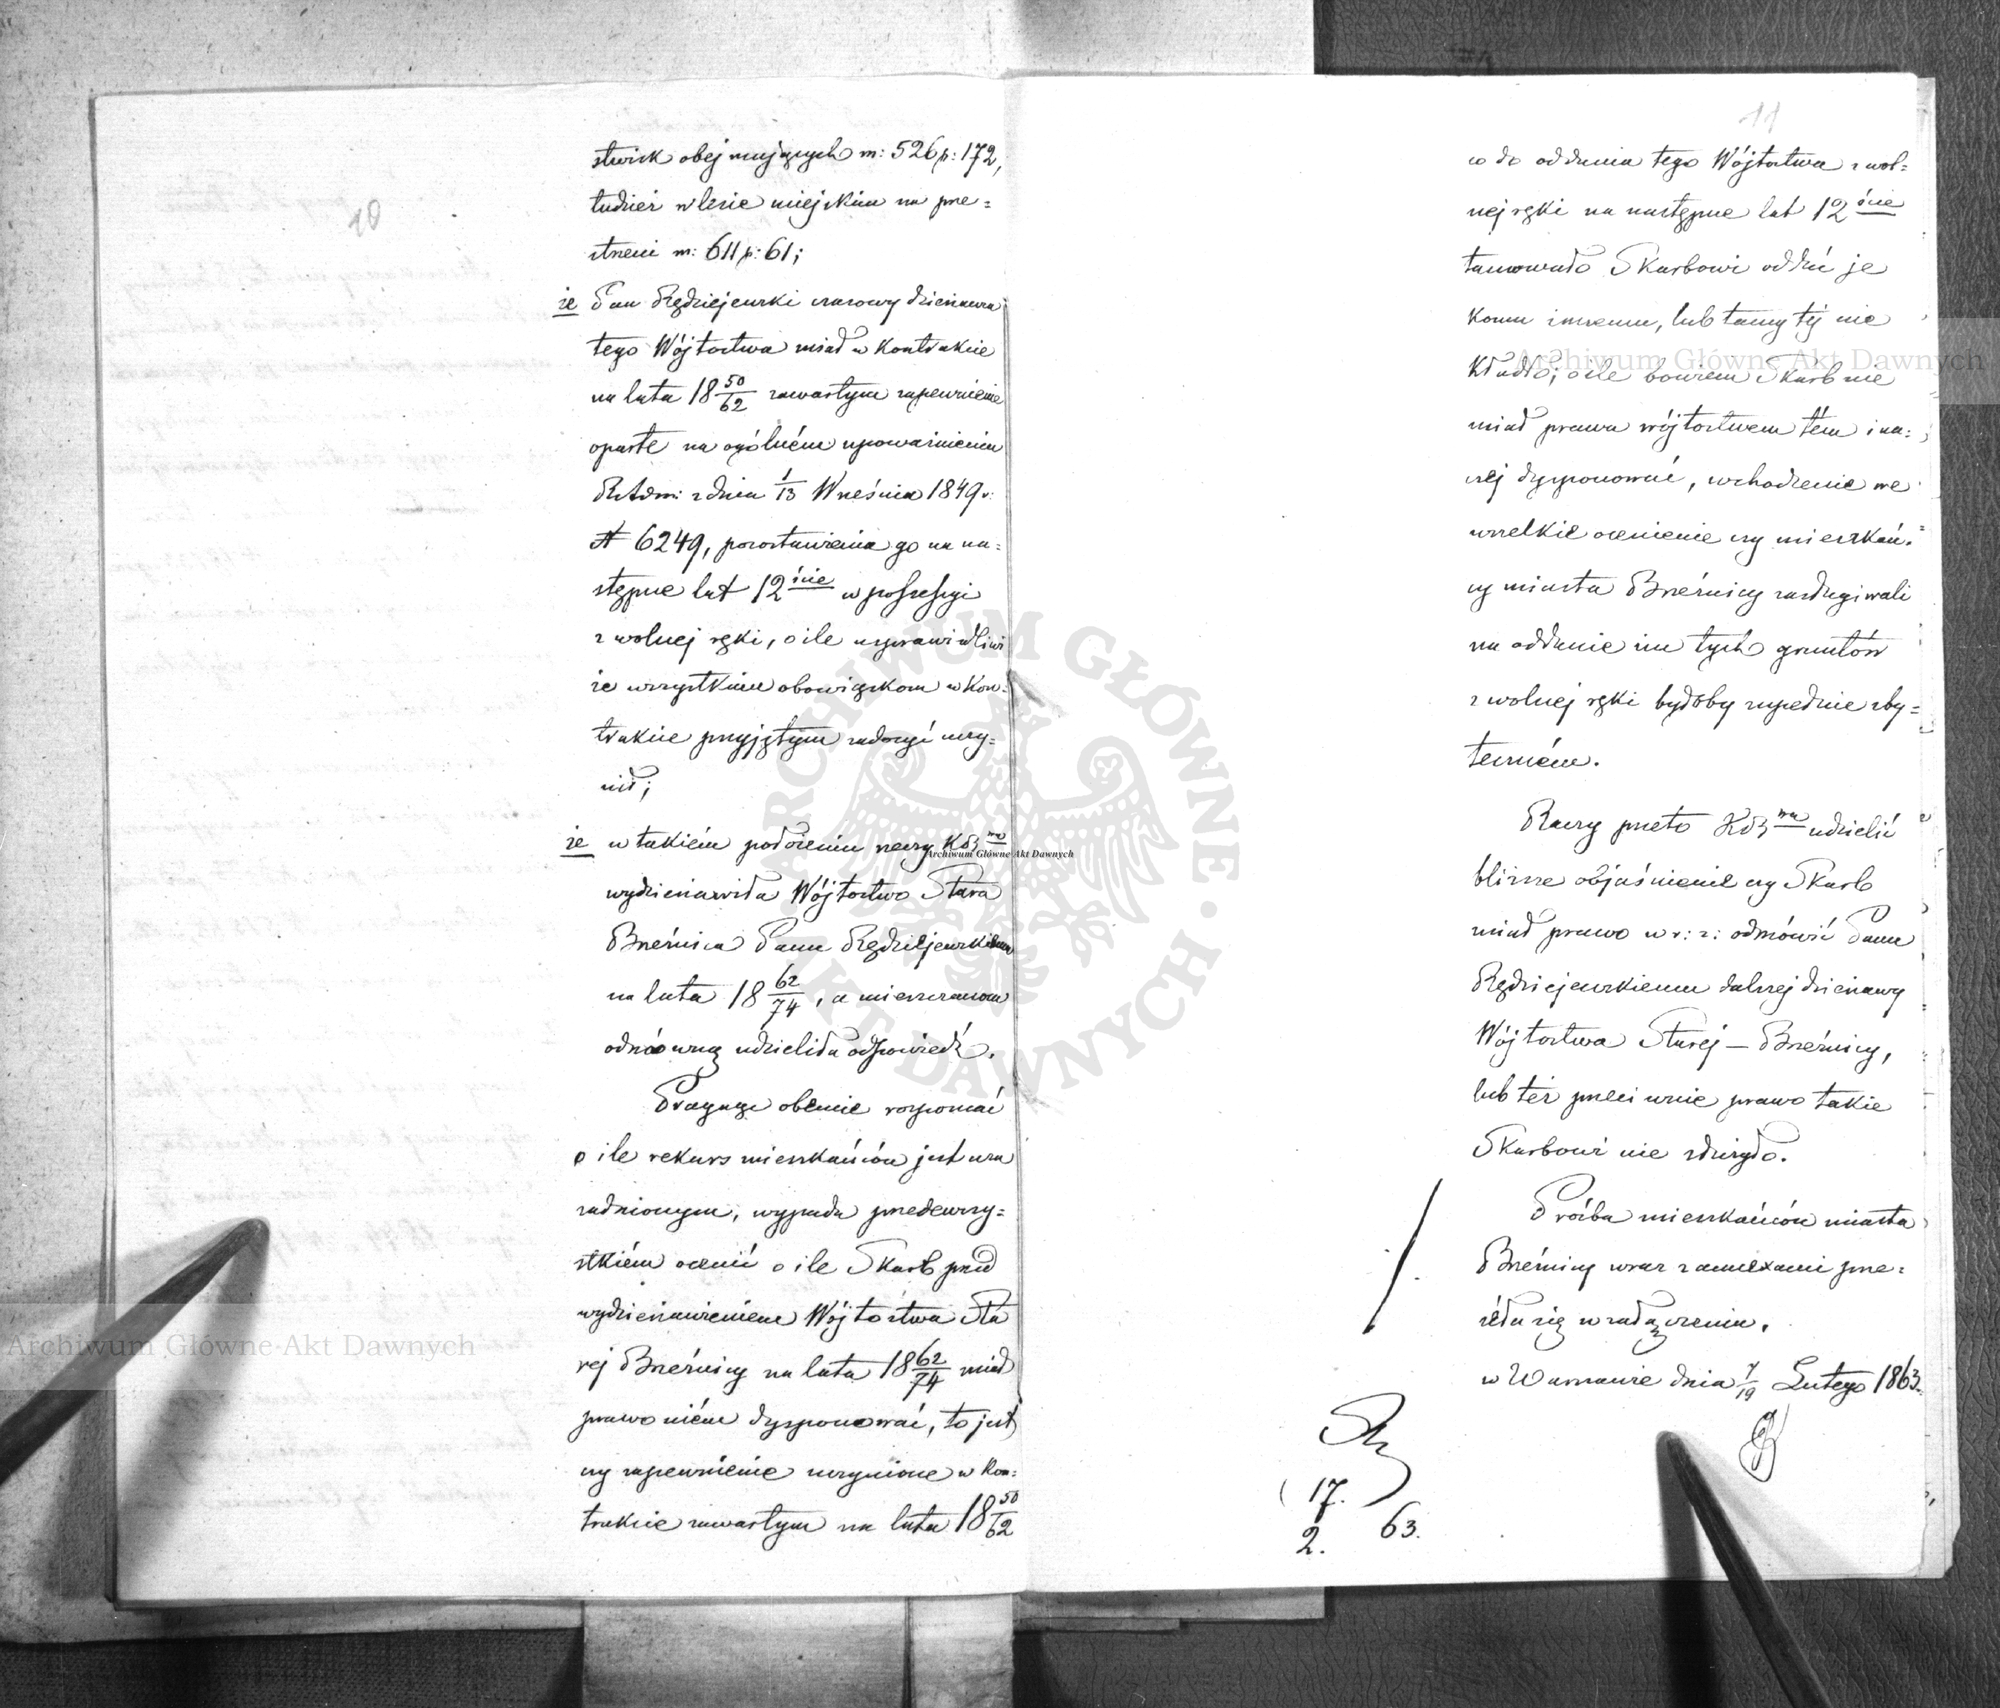 10
stwisk obejmujących m: 526 p: 172,
tudzież w lesie miejskim na prze=
strzeni m: 611 p: 61;
że Pan Rędziejewski czasowy dzierżawca
tego Wójtostwa miał w Kontrakcie
na lata 18 50/62 zawartym zapewnienie
oparte na ogólném upoważnieniu
R. Adm: z dnia 1/13 Września 1849 r:
N 6249, pozostawienia go na na=
stępne lat 12ście w possessyi
z wolnej ręki, o ile usprawiedliwi
że wszystkim obowiązkom w Kon=
trakcie przyjętym zadosyć uczy=
nił;
że w takiém położeniu rzeczy K
wydzierżawiła Wójtostwo Stara
Brzeźnica Panu Rędziejewskiemu
na lata 18 62/74, a mieszczanom
odmówną udzieliła odpowiedź.
Pragnąc obecnie rozpoznać
o ile rekurs mieszkańców jest uza
sadnionym, wypada przedewszy=
stkiém ocenić o ile Skarb przed
wydzierżawieniem Wójtostwa Sta
rej Brzeźnicy na lata 18 62/74 miał
prawo niém dysponować, to jest
czy zapewnienie uczynione w Kon=
trakcie zawartym na lata 18 50/62
11
co do oddania tego Wójtostwa z wol=
nej ręki na następne lat 12ście
tamowało Skarbowi oddać je
komu innemu, lub tamy téj nie
kładło; o ile bowiem Skarb nie
miał prawa wójtostwem tém ina=
czej dysponować, wchodzenie we
wszelkie ocenienie czy mieszkań=
cy miasta Brzeźnicy zasługiwali
na oddanie im tych gruntów
z wolnej ręki byłoby zupełnie zby=
teczném.
Raczy przeto K udzielić
bliższe objaśnienie czy Skarb
miał prawo w r: z: odmówić Panu
Rędziejewskiemu dalszej dzierżawy
Wójtostwa Staréj – Brzeźnicy,
lub też przeciwnie prawo takie
Skarbowi nie służyło.
Prośba mieszkańców miasta
Brzeźnicy wraz z annexami prze=
séła się w załączeniu.
w Warszawie dnia 7/19 Lutego 1863.
17.
2. 63.
Archiwum Główne Akt Dawnych
Archiwum Główne Akt Dawnych
Archiwum Główne Akt Dawnych
ARCHIWUM GŁÓWNE · AKT DAWNYCH ·